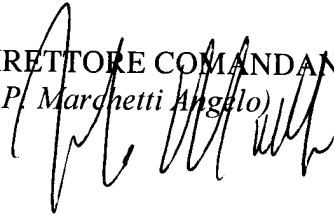 IRETTORE COMANDAN
P. Marchetti Angelo)